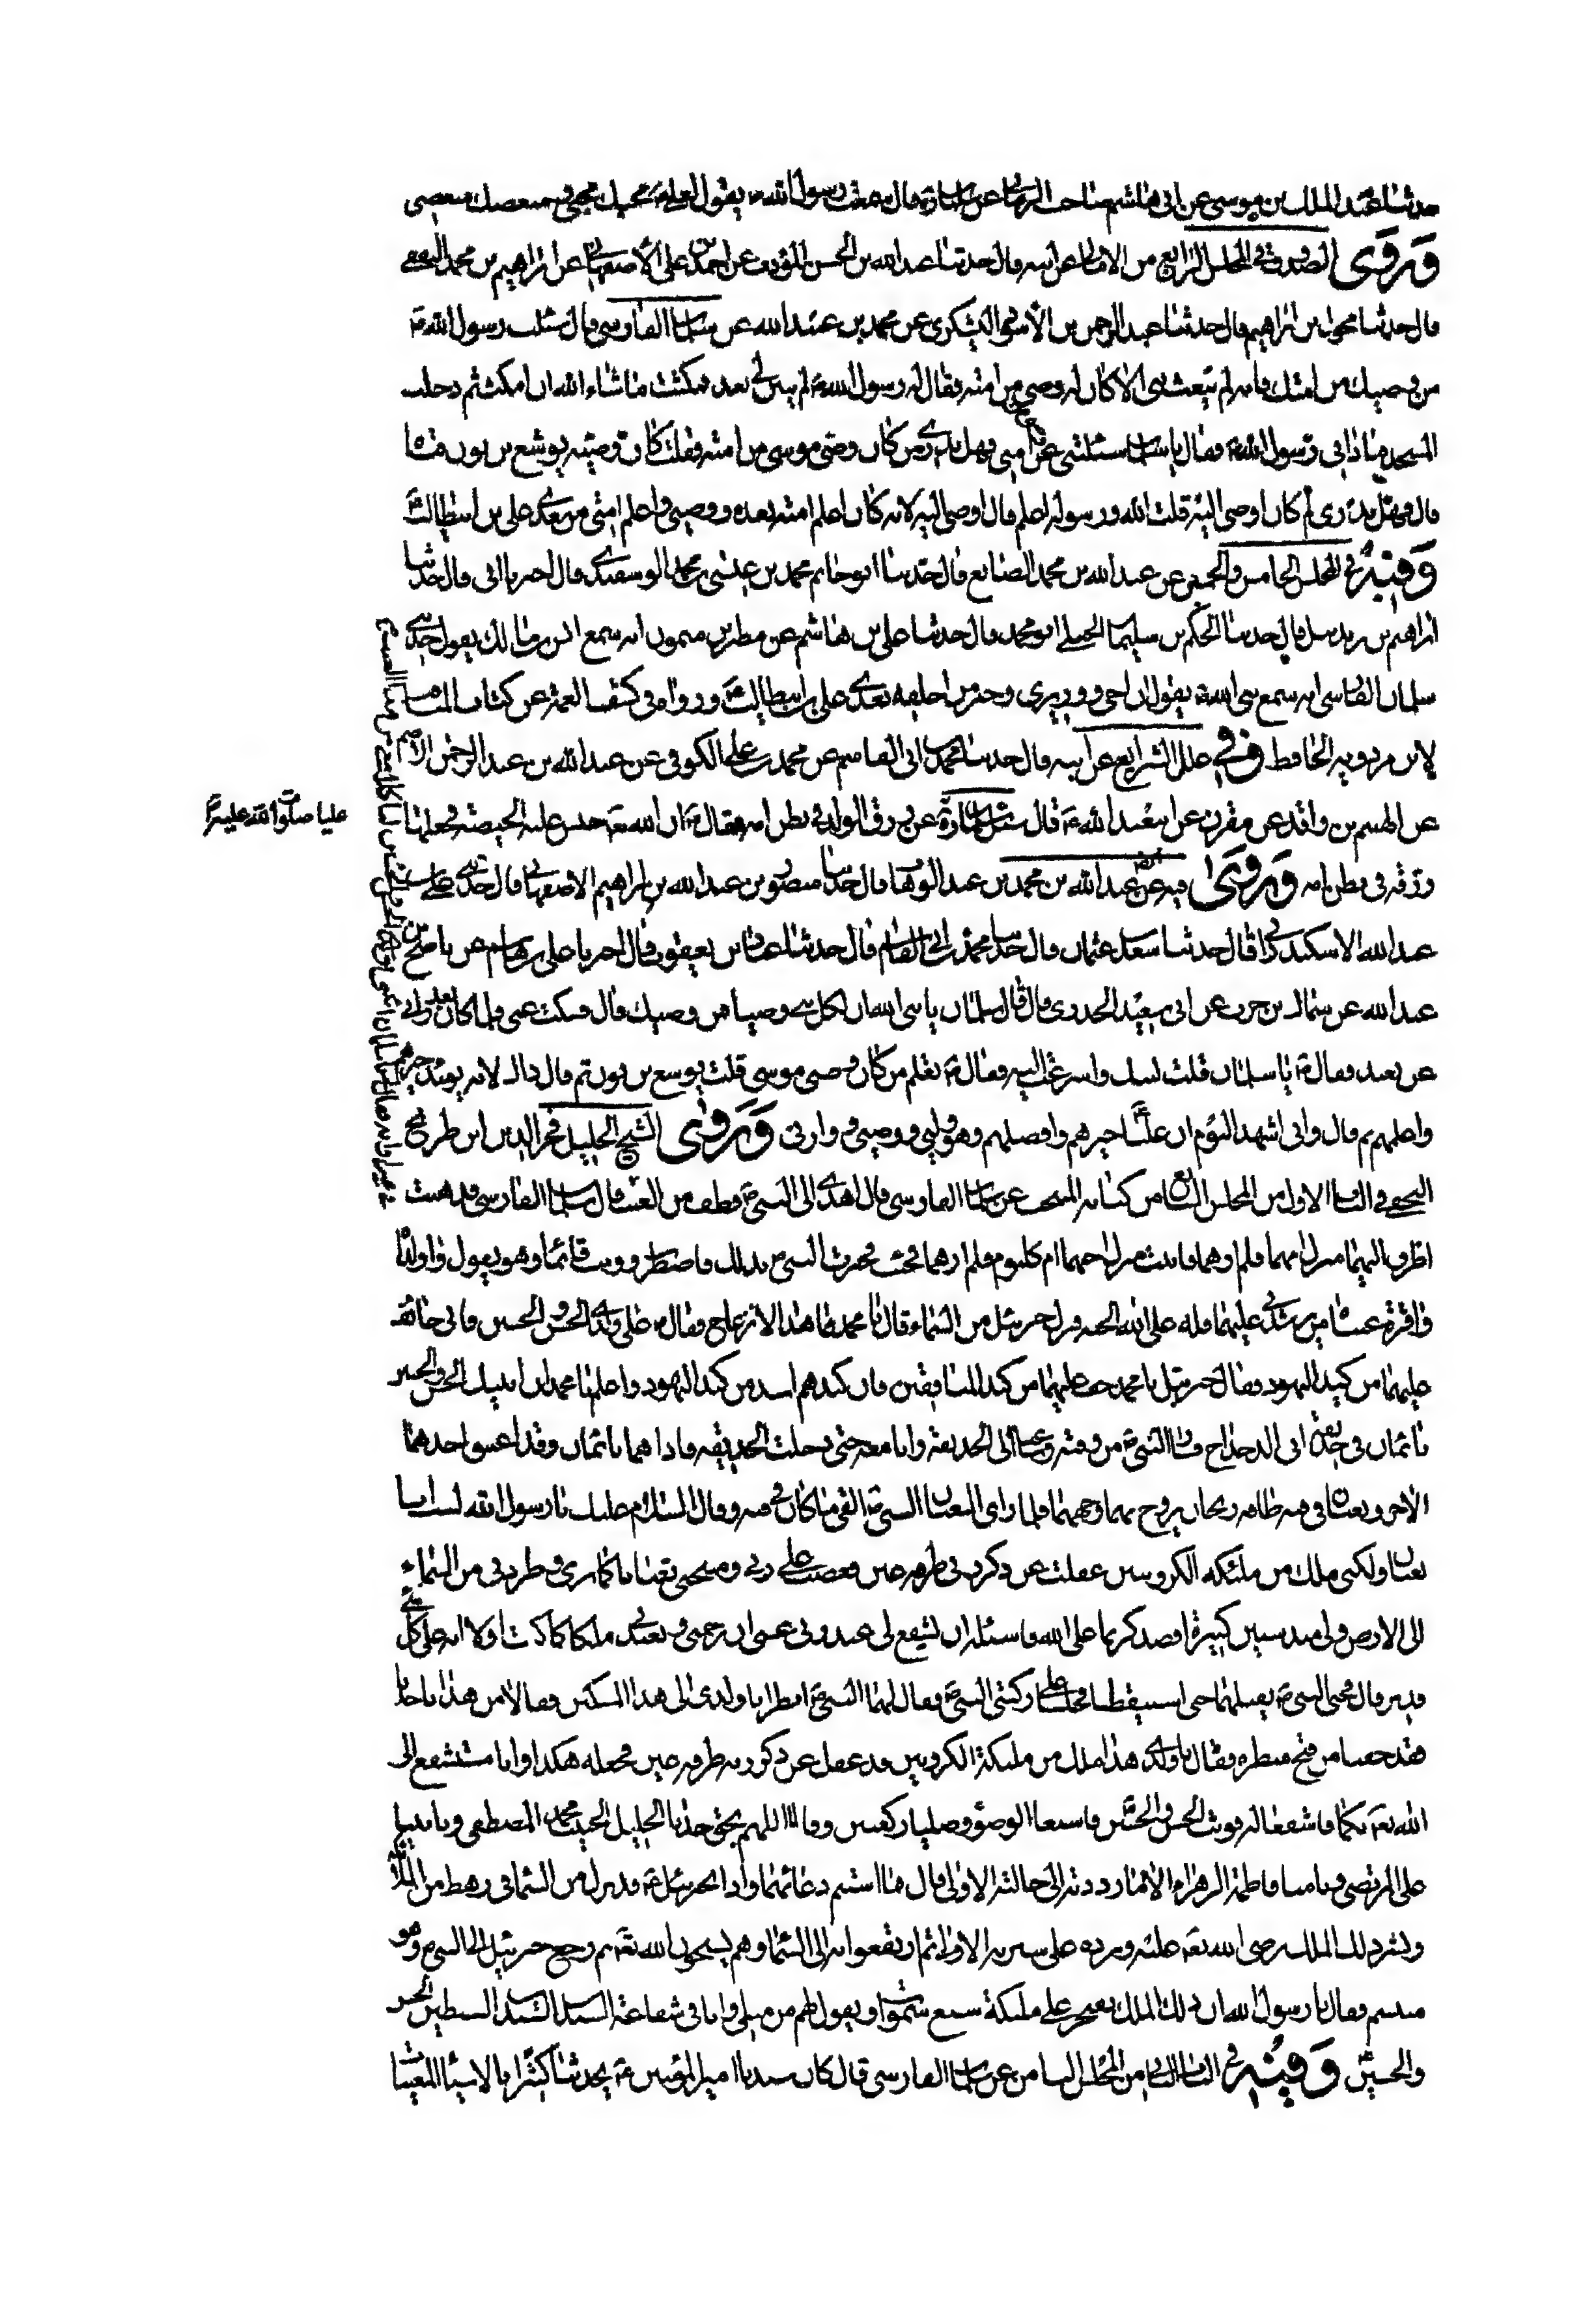 حدثنا عبد الملك بن موسى عن ابى هاشم صاحب الرمان عن سلمان ره قال سمعت رسول الله ص يقول لعلى ع محبك محبى و مبغضك مبغضى
وَرَوَى الصدوق فى المجلس الرابع من الامالى عن ابيه قال حدثنا عبد الله بن الحسن المؤدب عن احمد بن على الأصفهانى عن ابراهيم بن محمد الثقفى
قال حدثنا محول بن ابراهيم قال حدثنا عبد الرحمن بن الأسود اليشكرى عن محمد بن عبيد الله عن سلمان الفارسى قال سئلت رسول الله ص
من وصيك من امتك فانه لم يبعث نبى الا كان له وصى من امته فقال رسول الله ص لم يبين لى بعد فمكثت ما شاء الله ان امكث ثم دخلت
المسجد فنادانى رسول الله ص فقال يا سلمان سئلتنى عن وصيى من امتى فهل تدرى من كان وصى موسى من امته فقلت كان وصيه يوشع بن نون فتاه
قال فهل تدرى لم كان اوصى اليه قلت الله ورسوله اعلم قال اوصى اليه لانه كان اعلم امته بعده ووصيى واعلم امتى من بعدى على بن ابيطالب ع
وَفِيْهِ فى المجلس الخامس و الخمسين عن عبد الله بن محمد الصايغ قال حدثنا ابو حاتم محمد بن عيسى بن محمد الوسقندى قال اخبرنا ابى قال حدثنا
ابراهيم بن ديزيل قال حدثنا الحكم بن سليمان الجبلى ابو محمد قال حدثنا على بن هاشم عن مطر بن ميمون انه سمع انس بن مالك يقول حدثنى
سلمان الفارسى انه سمع نبى الله ص يقول ان اخى ووزيرى وخير من اخلفه بعدى على بن ابيطالب ع ورواه فى كشف الغمة عن كتاب المناقب
لابن مردويه الحافظ وَفِى علل الشرايع عن ابيه قال حدثنا محمد بن ابى القاسم عن محمد بن على الكوفى عن عبد الله بن عبد الرحمن الاصم
عن الهيثم بن واقد عن مقرن عن ابيعبد الله ع قال سئل سلمان ره عليا صلوات الله عليه عن رزق الولد فى بطن امه فقال ع ان الله تعه حبس عليه الحيضة فجعلها
رزقه فى بطن امه وَرَوَى فيه عن عبد الله بن محمد بن عبد الوهاب قال حدثنا منصور بن عبد الله بن ابراهيم الاصفهانى قال حدثنى على بن
عبد الله الاسكندرانى قال حدثنا سعد بن عثمان قال حدثنا محمد بن ابى القاسم قال حدثنا عباد بن يعقوب قال اخبرنا على بن هاشم عن ناصح بن
عبد الله عن سماك بن حرب عن ابى سعيد الخدرى قال قال سلمان يا نبى الله ان لكل نبى وصيا من وصيك قال فسكت عنى فلما كان بعد رانى
عن بعد فقال ص يا سلمان قلت لبيك واسرعت اليه فقال ص تعلم من كان وصى موسى قلت يوشع بن نون ثم قال ذاك لانه يومئذ خيرهم
واعلمهم ثم قال وانى اشهد اليوم ان عليا خيرهم وافضلهم وهو وليى ووصيى و وارثى وَرَوَى الشيخ الجليل فخر الدين ابن طريح
النجفى فى الباب الاول من المجلس من كتابه المنتخب عن سلمان الفارسى قال اهدى الى النبى ص قطف من العنب قال سلمان الفارسى فذهبت
اطرق اليهما منزل امهما فلم ارهما فاتيت منزل اختهما ام كلثوم فلم ارهما فجئت فخبرت النبى ص بذلك فاضطرب ووثب قائما وهو يقول وا ولداه
وا قرة عيناه من يرشدنى عليهما فله على الله الجنة فنزل جبرئيل من السماء وقال يا محمد ما هذا الانزعاج فقال ص على ولدى الحسن و الحسين فانى خائف
عليهما من كيد اليهود فقال جبرئيل يا محمد خف عليهما من كيد المنافقين فان كيدهم اشد من كيد اليهود واعلم يا محمد ان ابنيك الحسن والحسين
نائمان فى حديقة ابى الدحداح فسار النبى ص من وقته وساعته الى الحديقة وانا معه حتى دخلت الحديقة فاذا هما نائمان وقد اعتنق احدهما
الاخر وثعبان فى فيه طاقة ريحان يروح بهما وجهيهما فلما راى الثعبان النبى ص القى ما كان فى فيه وقال السلام عليك يا رسول الله لست انا
ثعبانا ولكنى ملك من ملئكه الكروبين غفلت عن ذكر ربى طرفة عين فغضب على ربى ومسخنى ثعبانا كما ترى وطردنى من السماء
الى الارض ولى منذ سنين كثيرة اقصد كريما على الله فاسئله ان يشفع لى عند ربى عسى ان يرحمنى ويعيدنى ملكا كما كنت اولا انه على كل شئ
قدير قال فجثى النبى ص يقبلهما حتى استيقظا فجلسا على ركبتى النبى ص فقال لهما النبى ص انظرا يا ولدى الى هذا المسكين فقالا من هذا يا جدنا
فقد خفنا من قبح منظره فقال يا ولدى هذا ملك من ملئكة الكروبين قد غفل عن ذكر ربه طرفه عين فجعله هكذا وانا مستشفع الى
الله تعه بكما فاشفعا له فوثب الحسن والحسين فاسبغا الوضوء وصليا ركعتين وقالا اللهم بحق جدنا الجليل الحبيب محمد المصطفى وبابينا
على المرتضى وبامنا فاطمة الزهراء الا ما رددته الى حالته الاولى قال فما استتم دعائهما واذا بجبرئيل ع قد نزل من السماء فى رهط من الملائكة
وبشر ذلك الملك برضى الله تعه عليه وبرده على سيرته الاولى ثم ارتفعوا به الى السماء وهم يسبحون الله تعه ثم رجع جبرئيل الى النبى ص وهو
متبسم وقال يا رسول الله ان ذلك الملك يفتخر على ملئكة سبع سموات ويقول لهم من مثلى وانا فى شفاعة السيدين السبطين الحسن
والحسين وَفِيْهِ فى الباب الثانى من المجلس الثامن عن سلمان الفارسى قال كان سيدنا امير المؤمنين ع يحدثنا كثيرا بالاشياء المغيبات
عليا صلوات الله عليه